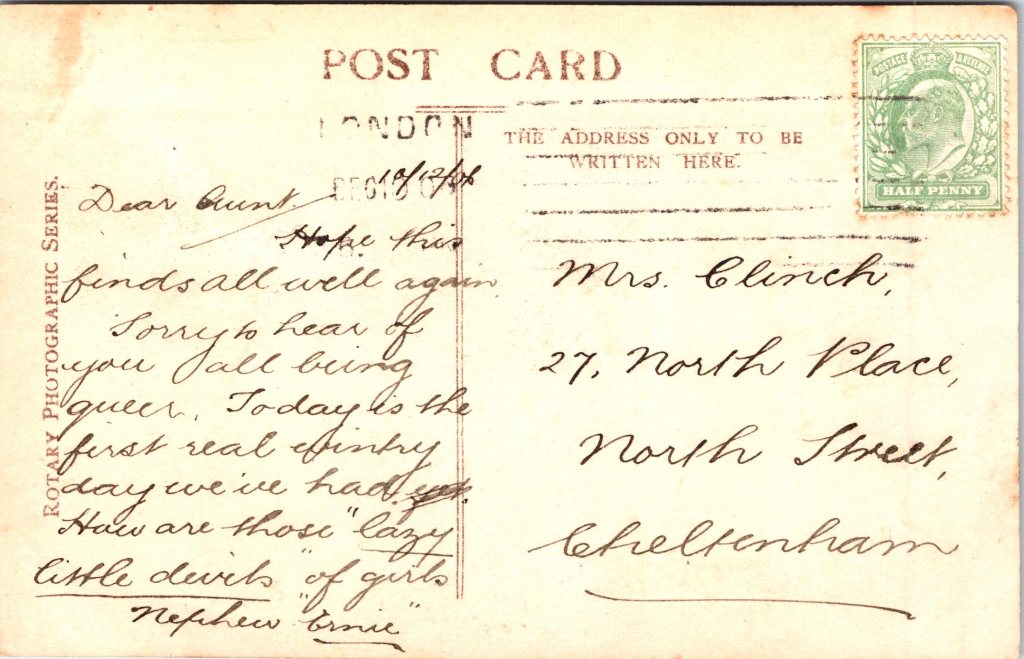 POST CARD
LONDON
THE ADDRESS ONLY TO BE
WRITTEN HERE.
POSTAGE & REVENUE
HALF PENNY
ROTARY PHOTOGRAPHIC SERIES.
10/12/06
DEC 10
Dear Aunt.
Hope this
finds all well again
Sorry to hear of
you all being
queer. Today is the
first real wintry
day we've had yet.
How are those "lazy
little devils" of girls
Nephew "Ernie"
Mrs. Clinch,
27, North Place,
North Street,
Cheltenham